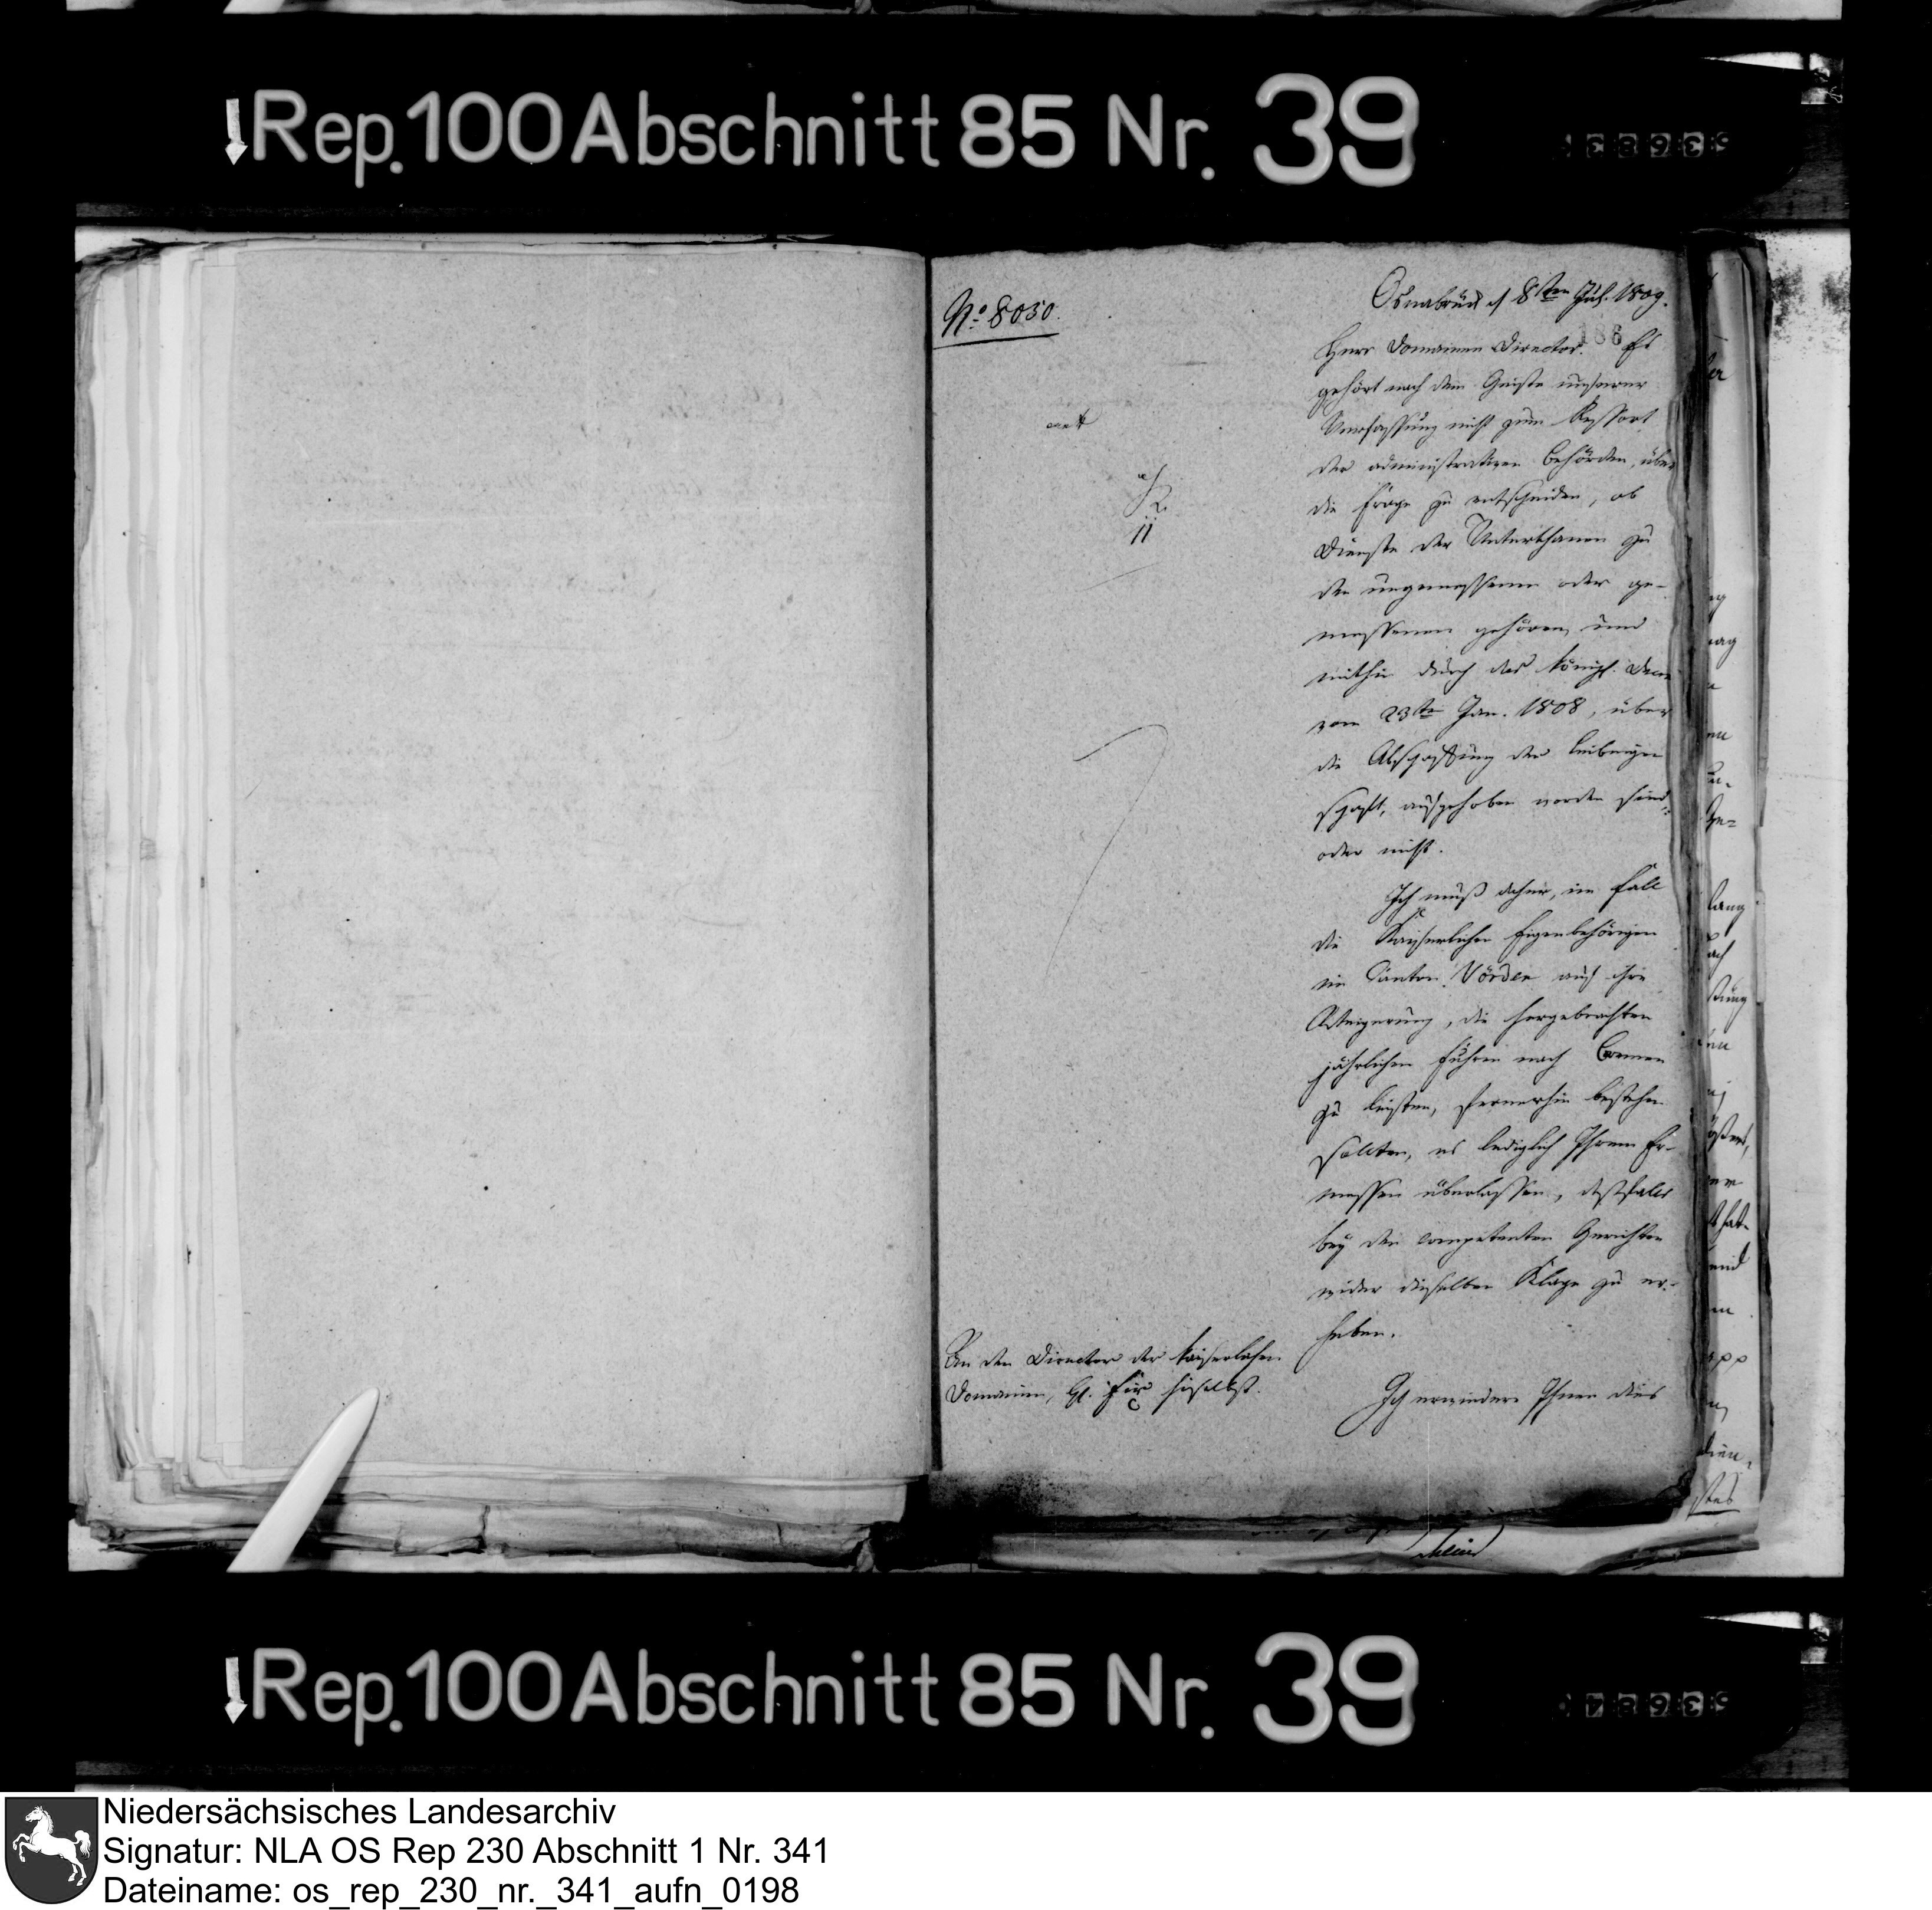 Rep. 100 Abschnitt 85 Nr. 39
No. 8050.
Osnabrück d 8ten Jul. 1809.
186
Herr Domainen Director. Es
gehört nach dem Geiste unserer
Verfassung nicht zum Ressort
der administrativen Behörden, über
die Frage zu entscheiden, ob
Dienste der Unterthanen zu
den ungemessenen oder ge-
messenen gehören, und
mithin durch das Königl. Decret
vom 23ten Jan. 1808, über
die Abschaffung der Leibeigen
schaft, aufgehoben worden sind,
oder nicht.
Ich muß daher, im Fall
die Kayserlichen Eigenbehörigen
im Canton Vörden auf ihre
Weigerung, die hergebrachten
jährlichen Fuhren nach Bremen
zu leisten, fernerhin bestehen
sollten, es lediglich Ihrem Er-
messen überlassen, desfalls
bey den competenten Gerichten
wider dieselben Klage zu er-
heben.
Ich erwiedere Ihnen dies
An den Director der Kaiserlichen
Domainen, H. hieselbst.
Rep. 100 Abschnitt 85 Nr. 39
Niedersächsisches Landesarchiv
Signatur: NLA OS Rep 230 Abschnitt 1 Nr. 341
Dateiname: os_rep_230_nr._341_aufn_0198